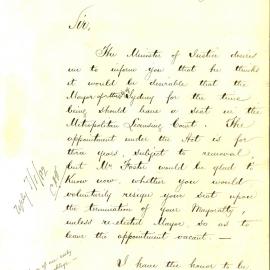 Sir,
The Minister of Justice desires
me to inform you that he thinks
it would be desirable that the
Mayor of Sydney for the time
being should have a seat in the
Metropolitan Licensing Court. The
appointment under the Act is for
three years, subject to removal;
but Mr Foster would be glad to
know now whether you would
voluntarily resign your seat upon
the termination of your Mayoralty,
unless re-elected Mayor, so as to
leave the appointment vacant. —
I have the honor to be